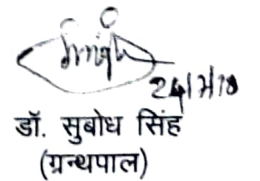 24/7/18
डॉ. सुबोध सिंह
(ग्रन्थपाल)